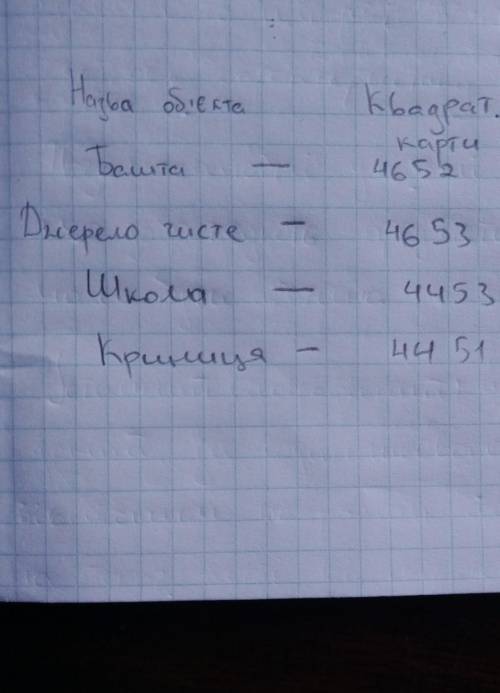 Назва об'єкта Квадрат.
карти
Башта — 4652
Джерело чисте — 4653
Школа — 4453
Криниця — 4451